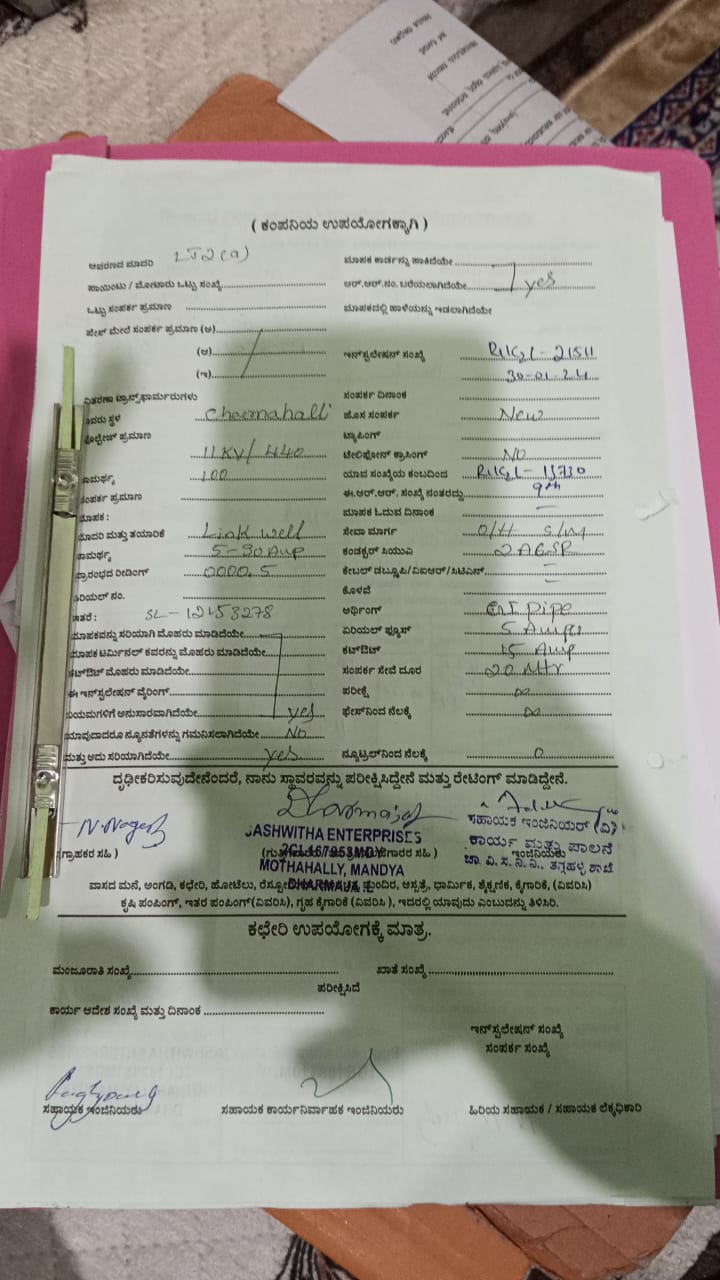 ( ಕಂಪನಿಯ ಉಪಯೋಗಕ್ಕಾಗಿ )
ಆವರಣದ ಮಾದರಿ LT2(a) ಮಾಪಕ ಕಾರ್ಡನ್ನು ಹಾಕಿದೆಯೇ
ಪಾಯಿಂಟು / ಮೋಟಾರು ಒಟ್ಟು ಸಂಖ್ಯೆ ಆರ್.ಆರ್.ನಂ. ಬರೆಯಲಾಗಿದೆಯೇ yes
ಒಟ್ಟು ಸಂಪರ್ಕ ಪ್ರಮಾಣ ಮಾಪಕದಲ್ಲಿ ಹಾಳೆಯನ್ನು ಇಡಲಾಗಿದೆಯೇ
ಪೇಸ್ ಮೇಲೆ ಸಂಪರ್ಕ ಪ್ರಮಾಣ (ಅ)
(ಆ) ಇನ್‌ಸ್ಟಲೇಷನ್ ಸಂಖ್ಯೆ 21511
(ಇ) 30-01-24
ವಿತರಣಾ ಟ್ರಾನ್ಸ್‌ಫಾರ್ಮರುಗಳು ಸಂಪರ್ಕ ದಿನಾಂಕ
ಸ್ಥಳ Cheernahalli ಹೊಸ ಸಂಪರ್ಕ New
ಪ್ರಮಾಣ ಟ್ಯಾಪಿಂಗ್
11 KV/440 ಟೆಲಿಫೋನ್ ಕ್ರಾಸಿಂಗ್ NO
100 ಯಾವ ಸಂಖ್ಯೆಯ ಕಂಬದಿಂದ 13730
ಸಂಪರ್ಕ ಪ್ರಮಾಣ ಈ.ಆರ್.ಆರ್. ಸಂಖ್ಯೆ ನಂತರದ್ದು
ಮಾಪಕ : ಮಾಪಕ ಓದುವ ದಿನಾಂಕ –
ಮಾದರಿ ಮತ್ತು ತಯಾರಿಕೆ Link well ಸೇವಾ ಮಾರ್ಗ O/H
ಸಾಮರ್ಥ್ಯ 5-30 Amp ಕಂಡಕ್ಟರ್ ಸಿಯುವಿ
ಪ್ರಾರಂಭದ ರೀಡಿಂಗ್ 0000.5 ಕೇಬಲ್ ಡಬ್ಲೂಪಿ/ವಿಐಆರ್/ಸಿಟಿಎಸ್ –
ಸಿರಿಯಲ್ ನಂ. ಕೊಳವೆ –
ಇತರೆ : SL-12453278 ಅರ್ಥಿಂಗ್ pipe
ಮಾಪಕವನ್ನು ಸರಿಯಾಗಿ ಮೊಹರು ಮಾಡಿದೆಯೇ ಏರಿಯಲ್ ಫ್ಯೂಸ್ 5 Amps
ಮಾಪಕ ಟರ್ಮಿನಲ್ ಕವರನ್ನು ಮೊಹರು ಮಾಡಿದೆಯೇ ಕಟ್‌ಔಟ್ 15 Amp
ಕಟ್‌ಔಟ್ ಮೊಹರು ಮಾಡಿದೆಯೇ ಸಂಪರ್ಕ ಸೇವೆ ದೂರ 20 Mtr
ಈ ಇನ್‌ಸ್ಟಲೇಷನ್ ವೈರಿಂಗ್ ಪರೀಕ್ಷೆ ∞
ನಿಯಮಗಳಿಗೆ ಅನುಸಾರವಾಗಿದೆಯೇ yes ಫೇಸ್‌ನಿಂದ ನೆಲಕ್ಕೆ ∞
ಯಾವುದಾದರೂ ನ್ಯೂನತೆಗಳನ್ನು ಗಮನಿಸಲಾಗಿದೆಯೇ NO
ಮತ್ತು ಅದು ಸರಿಯಾಗಿದೆಯೇ yes ನ್ಯೂಟ್ರಲ್‌ನಿಂದ ನೆಲಕ್ಕೆ 0
ದೃಢೀಕರಿಸುವುದೇನೆಂದರೆ, ನಾನು ಸ್ಥಾವರವನ್ನು ಪರೀಕ್ಷಿಸಿದ್ದೇನೆ ಮತ್ತು ರೇಟಿಂಗ್ ಮಾಡಿದ್ದೇನೆ.
N. Nagesh
JASHWITHA ENTERPRISES
2CL167953MDY
MOTHAHALLY, MANDYA
ಸಹಾಯಕ ಇಂಜಿನಿಯರ್ (ವಿ)
ಕಾರ್ಯ ಮತ್ತು ಪಾಲನೆ
ಚಾ.ವಿ.ಸ.ನಿ.ನಿ.
(ಗ್ರಾಹಕರ ಸಹಿ ) ಇಂಜಿನಿಯರು
ವಾಸದ ಮನೆ, ಅಂಗಡಿ, ಕಛೇರಿ, ಹೋಟೆಲು, ಮಂದಿರ, ಆಸ್ಪತ್ರೆ, ಧಾರ್ಮಿಕ, ಶೈಕ್ಷಣಿಕ, ಕೈಗಾರಿಕೆ, (ವಿವರಿಸಿ)
ಕೃಷಿ ಪಂಪಿಂಗ್, ಇತರ ಪಂಪಿಂಗ್(ವಿವರಿಸಿ), ಗೃಹ ಕೈಗಾರಿಕೆ (ವಿವರಿಸಿ ), ಇದರಲ್ಲಿ ಯಾವುದು ಎಂಬುದನ್ನು ತಿಳಿಸಿರಿ.
ಕಛೇರಿ ಉಪಯೋಗಕ್ಕೆ ಮಾತ್ರ.
ಮಂಜೂರಾತಿ ಸಂಖ್ಯೆ ಖಾತೆ ಸಂಖ್ಯೆ
ಪರೀಕ್ಷಿಸಿದೆ
ಕಾರ್ಯ ಆದೇಶ ಸಂಖ್ಯೆ ಮತ್ತು ದಿನಾಂಕ
ಇನ್‌ಸ್ಟಲೇಷನ್ ಸಂಖ್ಯೆ
ಸಂಪರ್ಕ ಸಂಖ್ಯೆ
ಸಹಾಯಕ ಇಂಜಿನಿಯರು ಸಹಾಯಕ ಕಾರ್ಯನಿರ್ವಾಹಕ ಇಂಜಿನಿಯರು ಹಿರಿಯ ಸಹಾಯಕ / ಸಹಾಯಕ ಲೆಕ್ಕಧಿಕಾರಿ